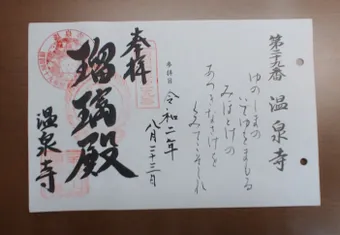 第二十九番 温泉寺
ゆのしまの
いでゆをまもる
みほとけの
あつきなさけを
くみてこそしれ
参拝日
令和二年
八月二十三日
奉拝
瑠璃殿
温泉寺